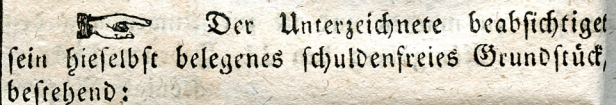 ☞ Der Unterzeichnete beabsichtiget
sein hieselbst belegenes schuldenfreies Grundstück,
bestehend: